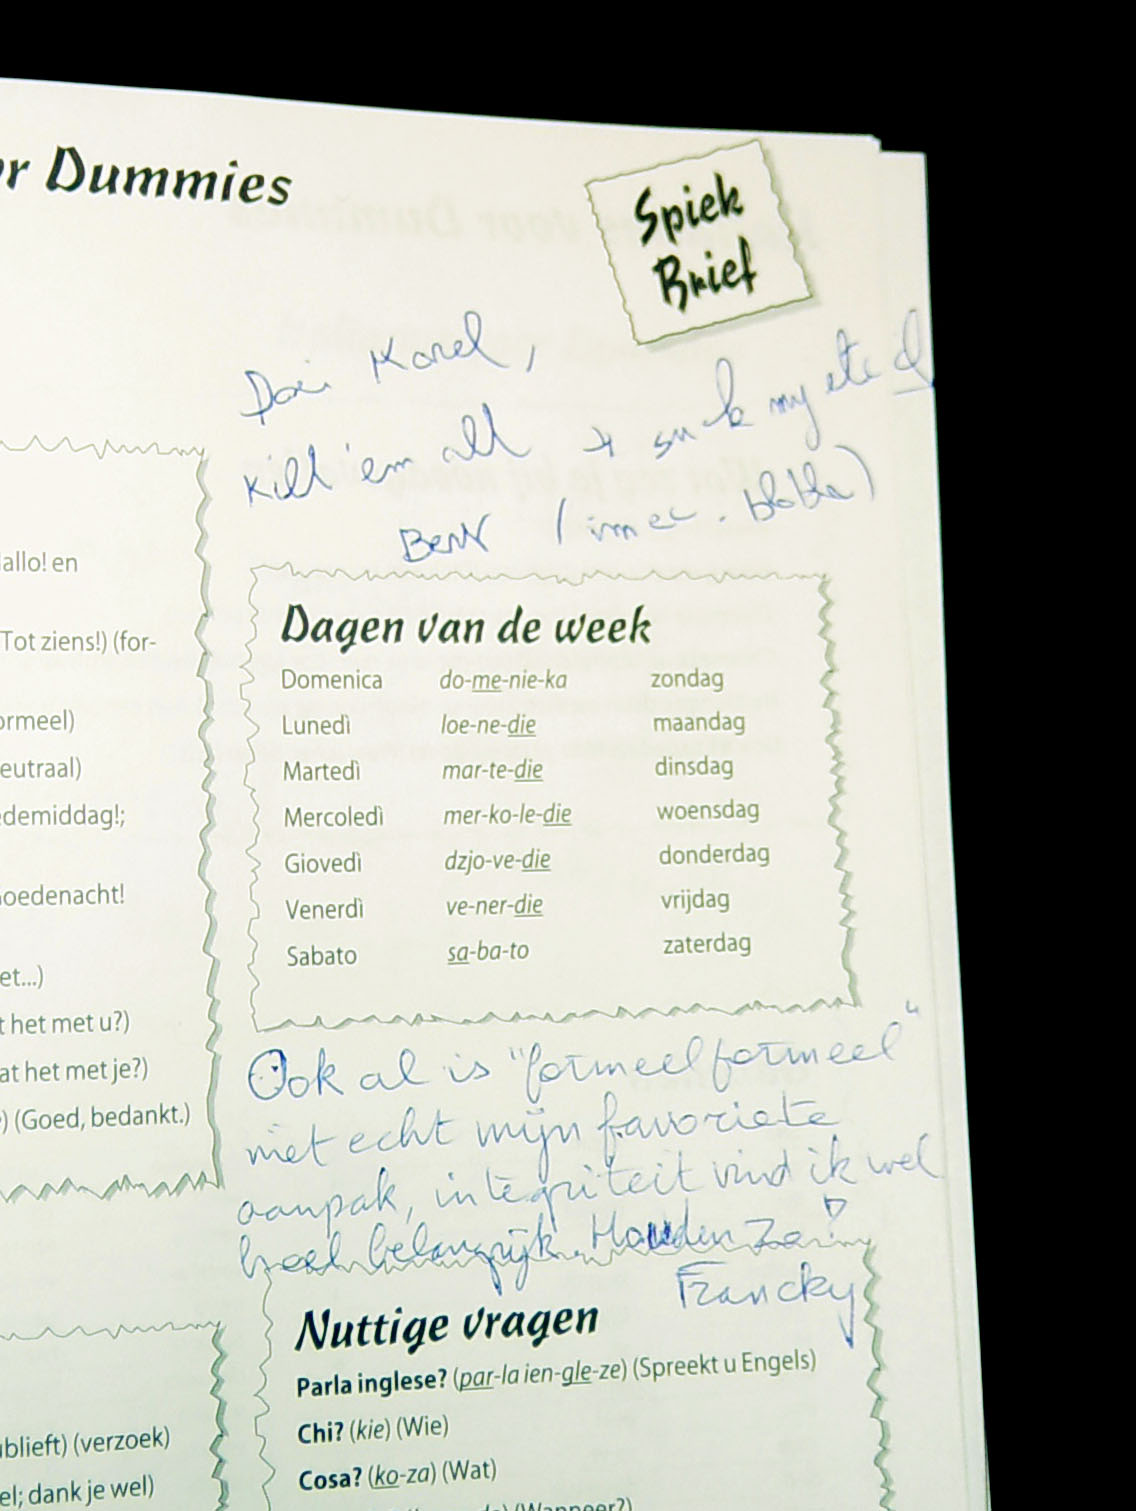 r Dummies
Spiek
Brief
Karel,
Kill 'em all → suck my
(imec. blabla)
allo! en
Tot ziens!) (for-
ormeel)
eutraal)
edemiddag!;
oedenacht!
et...)
t het met u?)
at het met je?)
) (Goed, bedankt.)
Dagen van de week
Domenica do-me-nie-ka zondag
Lunedì loe-ne-die maandag
Martedì mar-te-die dinsdag
Mercoledì mer-ko-le-die woensdag
Giovedì dzjo-ve-die donderdag
Venerdì ve-ner-die vrijdag
Sabato sa-ba-to zaterdag
Ook al is "formeel formeel"
niet echt mijn favoriete
aanpak, integriteit vind ik wel
heel belangrijk. Houden zo!
Francky
Nuttige vragen
Parla inglese? (par-la ien-gle-ze) (Spreekt u Engels)
Chi? (kie) (Wie)
Cosa? (ko-za) (Wat)
(Wanneer?)
ublieft) (verzoek)
el; dank je wel)